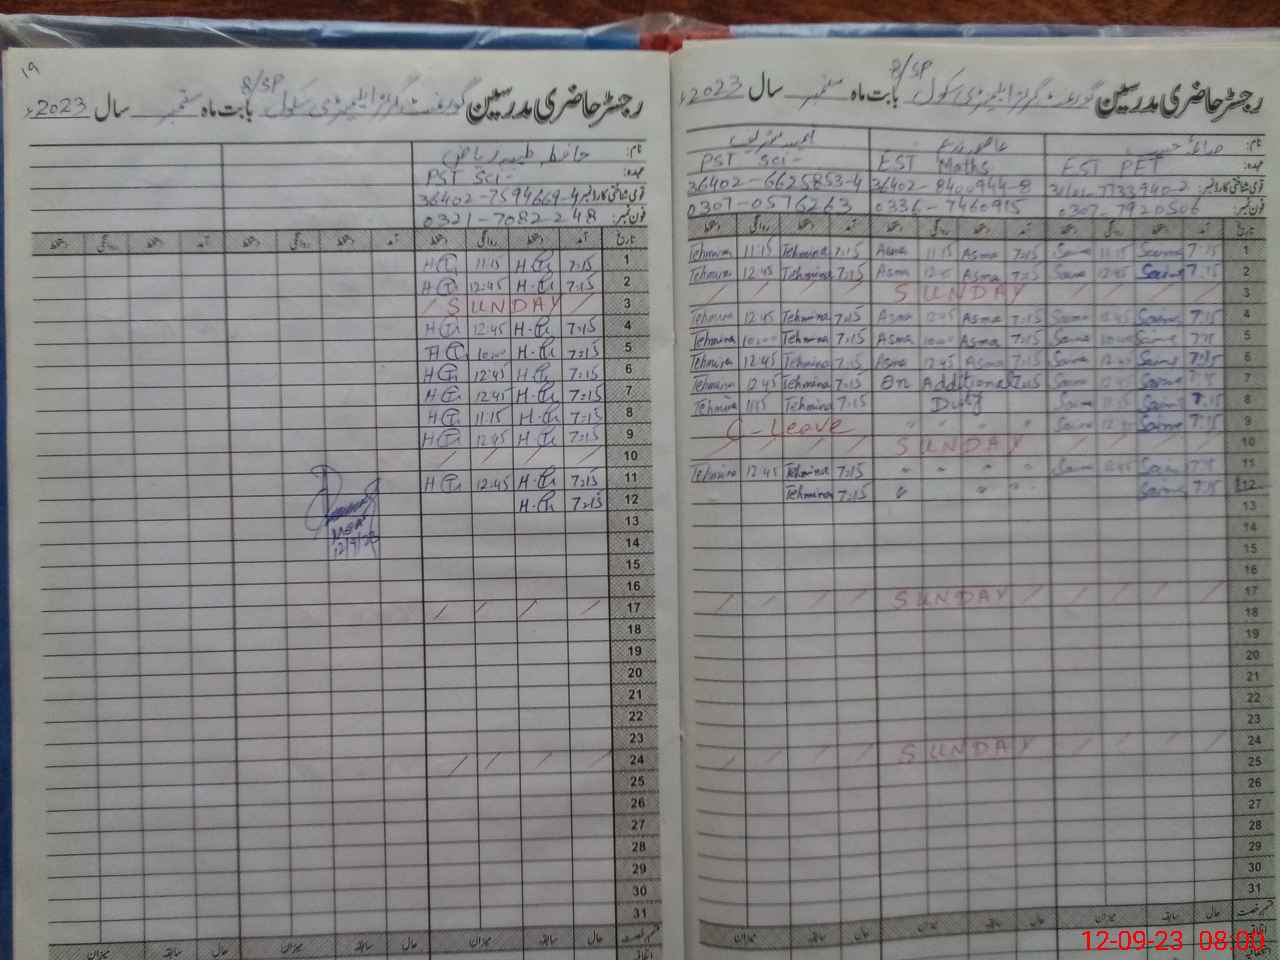 ۱۹
8/SP
رجسٹر حاضری مدرسین گورنمنٹ گرلز ایلیمنٹری سکول بابت ماہ ستمبر سال 2023ء
نام: حافظہ طیبہ ریاض
عہدہ: PST Sci-
قومی شناختی کارڈ نمبر: 36402-7594669-4
فون نمبر: 0321-7082248
تاریخ آمد دستخط روانگی دستخط آمد دستخط روانگی دستخط آمد دستخط روانگی دستخط
1 7:15 11:15
2 7:15 12:45
3 SUNDAY
4 7:15 12:45
5 7:15 10:00
6 7:15 12:45
7 7:15 12:45
8 7:15 11:15
9 7:15 12:45
10
11 7:15 12:45
12 7:15
13
14
15
16
17
18
19
20
21
22
23
24
25
26
27
28
29
30
31
12/9/23
حال سابقہ میزان حال سابقہ میزان حال سابقہ میزان
8/SP
رجسٹر حاضری مدرسین گورنمنٹ گرلز ایلیمنٹری سکول بابت ماہ ستمبر سال 2023ء
نام:
عہدہ: EST PET EST Maths PST Sci-
قومی شناختی کارڈ نمبر: 36402-8400944-8 36402-6625853-4
فون نمبر: 0307-7920506 0336-7460915 0307-0516263
تاریخ آمد دستخط روانگی دستخط آمد دستخط روانگی دستخط آمد دستخط روانگی دستخط
Tehmina 11:15 Tehmina 7:15 Asma 11:15 Asma 7:15 Saima 11:15 Saima 7:15 1
Tehmina 12:45 Tehmina 7:15 Asma 12:45 Asma 7:15 Saima 12:45 Saima 7:15 2
SUNDAY 3
Tehmina 12:45 Tehmina 7:15 Asma 12:45 Asma 7:15 Saima 12:45 Saima 7:15 4
Tehmina 10:00 Tehmina 7:15 Asma 10:00 Asma 7:15 Saima 10:00 Saima 7:15 5
Tehmina 12:45 Tehmina 7:15 Asma 12:45 Asma 7:15 Saima 12:45 Saima 7:15 6
Tehmina 12:45 Tehmina 7:15 On Additional 7:15 Saima 12:45 Saima 7:15 7
Tehmina 11:15 Tehmina 7:15 Duty Saima 11:15 Saima 7:15 8
C-Leave " " " Saima 12:45 Saima 7:15 9
SUNDAY 10
Tehmina 12:45 Tehmina 7:15 " " " " Saima 12:45 Saima 7:15 11
Tehmina 7:15 " " " Saima 7:15 12
13
14
15
16
SUNDAY 17
18
19
20
21
22
23
SUNDAY 24
25
26
27
28
29
30
31
حال سابقہ میزان حال سابقہ میزان حال سابقہ میزان
12-09-23 08:00